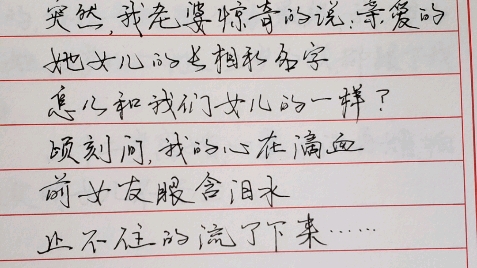 突然,我老婆惊奇的说:亲爱的
她女儿的长相和名字
怎么和我们女儿的一样?
顷刻间,我的心在滴血
前女友眼含泪水
止不住的流了下来……